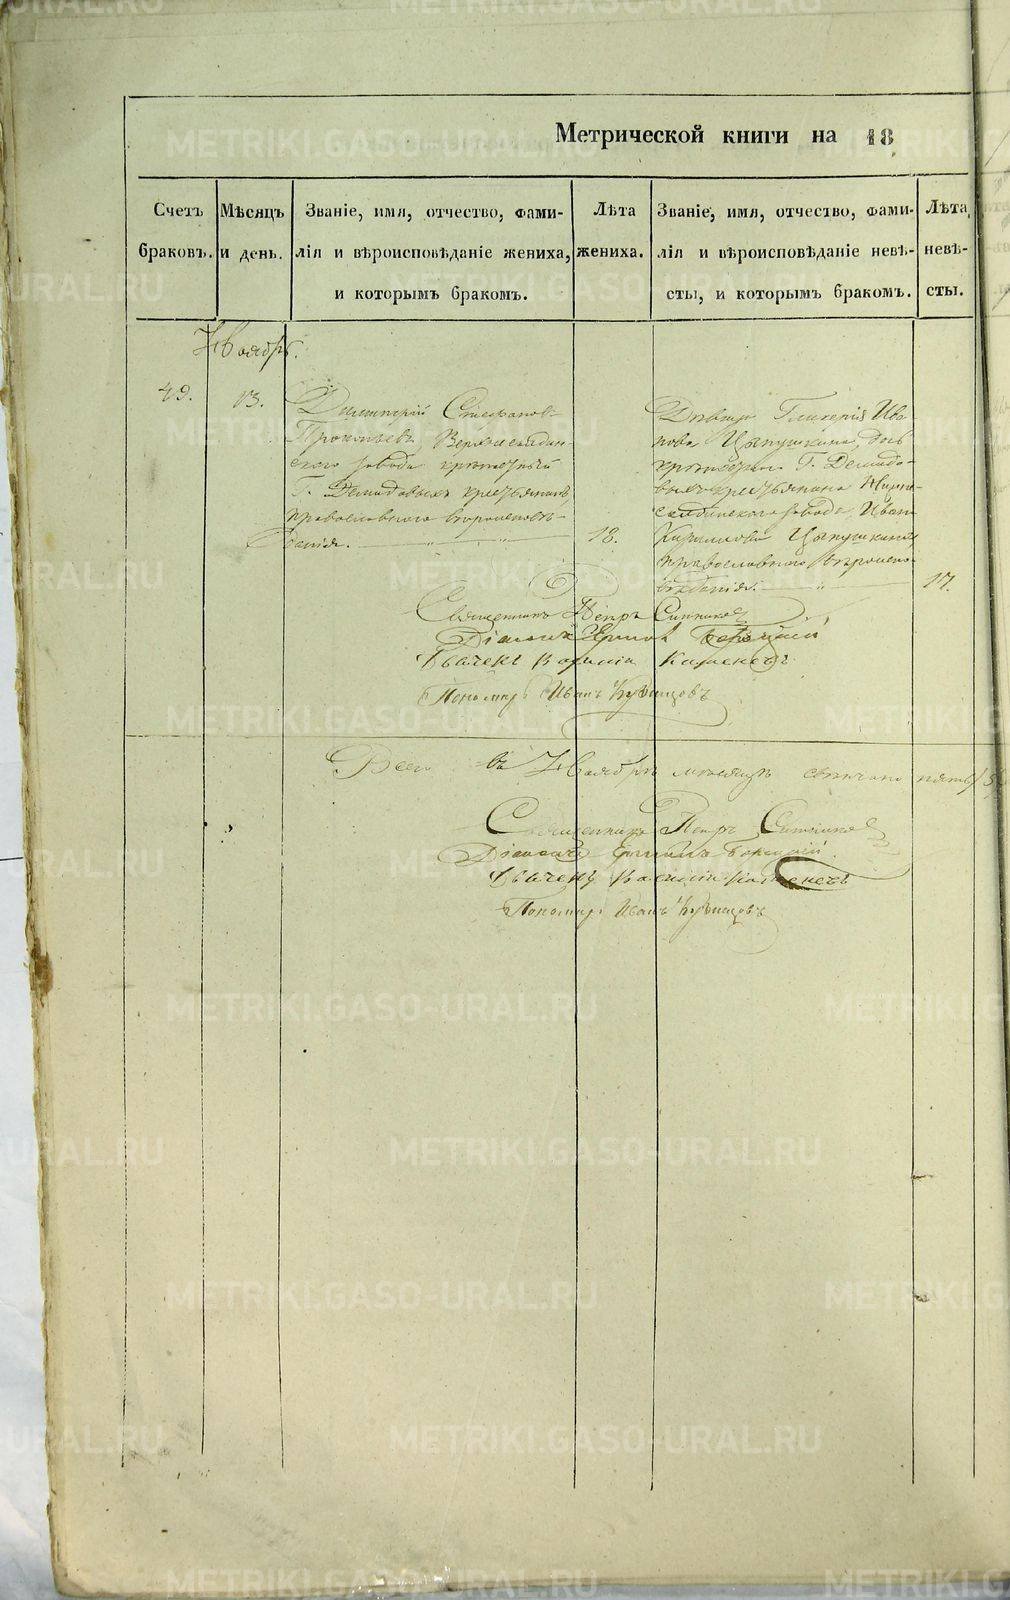 Метрической книги на 18
Счетъ браковъ.
Мѣсяцъ и день.
Званіе, имя, отчество, фами-
лія и вѣроисповѣданіе жениха,
и которымъ бракомъ.
Лѣта
жениха.
Званіе, имя, отчество, фами-
лія и вѣроисповѣданіе невѣ-
сты, и которымъ бракомъ.
Лѣта
невѣ-
сты.
Ноябрь.
49.
13.
Димитрій Стефановъ
Прокопьевъ Верхнесалдин-
скаго завода крѣпостный
Г. Демидовыхъ крестьянинъ
православнаго вѣроисповѣ-
данія.
18.
Дѣвица Гликерія Ива-
нова Цыпушкина дочь
Г. Демидо-
выхъ крестьянина Нижне-
салдинскаго завода Ивана
Кириллова Цыпушкина
православнаго вѣроиспо-
вѣданія.
17.
Священникъ Петръ
Діаконъ
Дьячекъ Василій Каменецъ
Пономарь Иванъ Кузнецовъ
Всего въ Ноябрѣ мѣсяцѣ пять
Священникъ Петръ
Діаконъ
Дьячекъ Василій Каменецъ
Пономарь Иванъ Кузнецовъ
METRIKI.GASO-URAL.RU